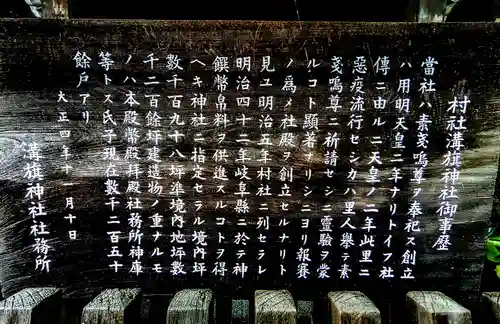 村社溝旗神社御事歴
當社ハ素戔嗚尊ヲ奉祀ス創立
ハ用明天皇二年ナリトイフ社
傳ニ由ルニ天皇ノ二年此里ニ
惡疫流行セシカハ里人擧テ素
戔嗚尊ニ祈請セシニ霊驗ヲ蒙
ルコト顯著ナリシニヨリ報賽
ノ爲メ社殿ヲ創立セルナリト
見ユ明治五年村社ニ列セラレ
明治四十二年岐阜縣ニ於テ神
饌幣帛料ヲ供進スルコトヲ得
ヘキ神社ニ指定セラル境内坪
數千百九十八坪準境内地坪數
千二百餘坪建造物ノ重ナルモ
ノハ本殿幣殿拜殿社務所神庫
等トス氏子現在數千二百五十
餘戸アリ
大正四年十一月十日
溝旗神社社務所